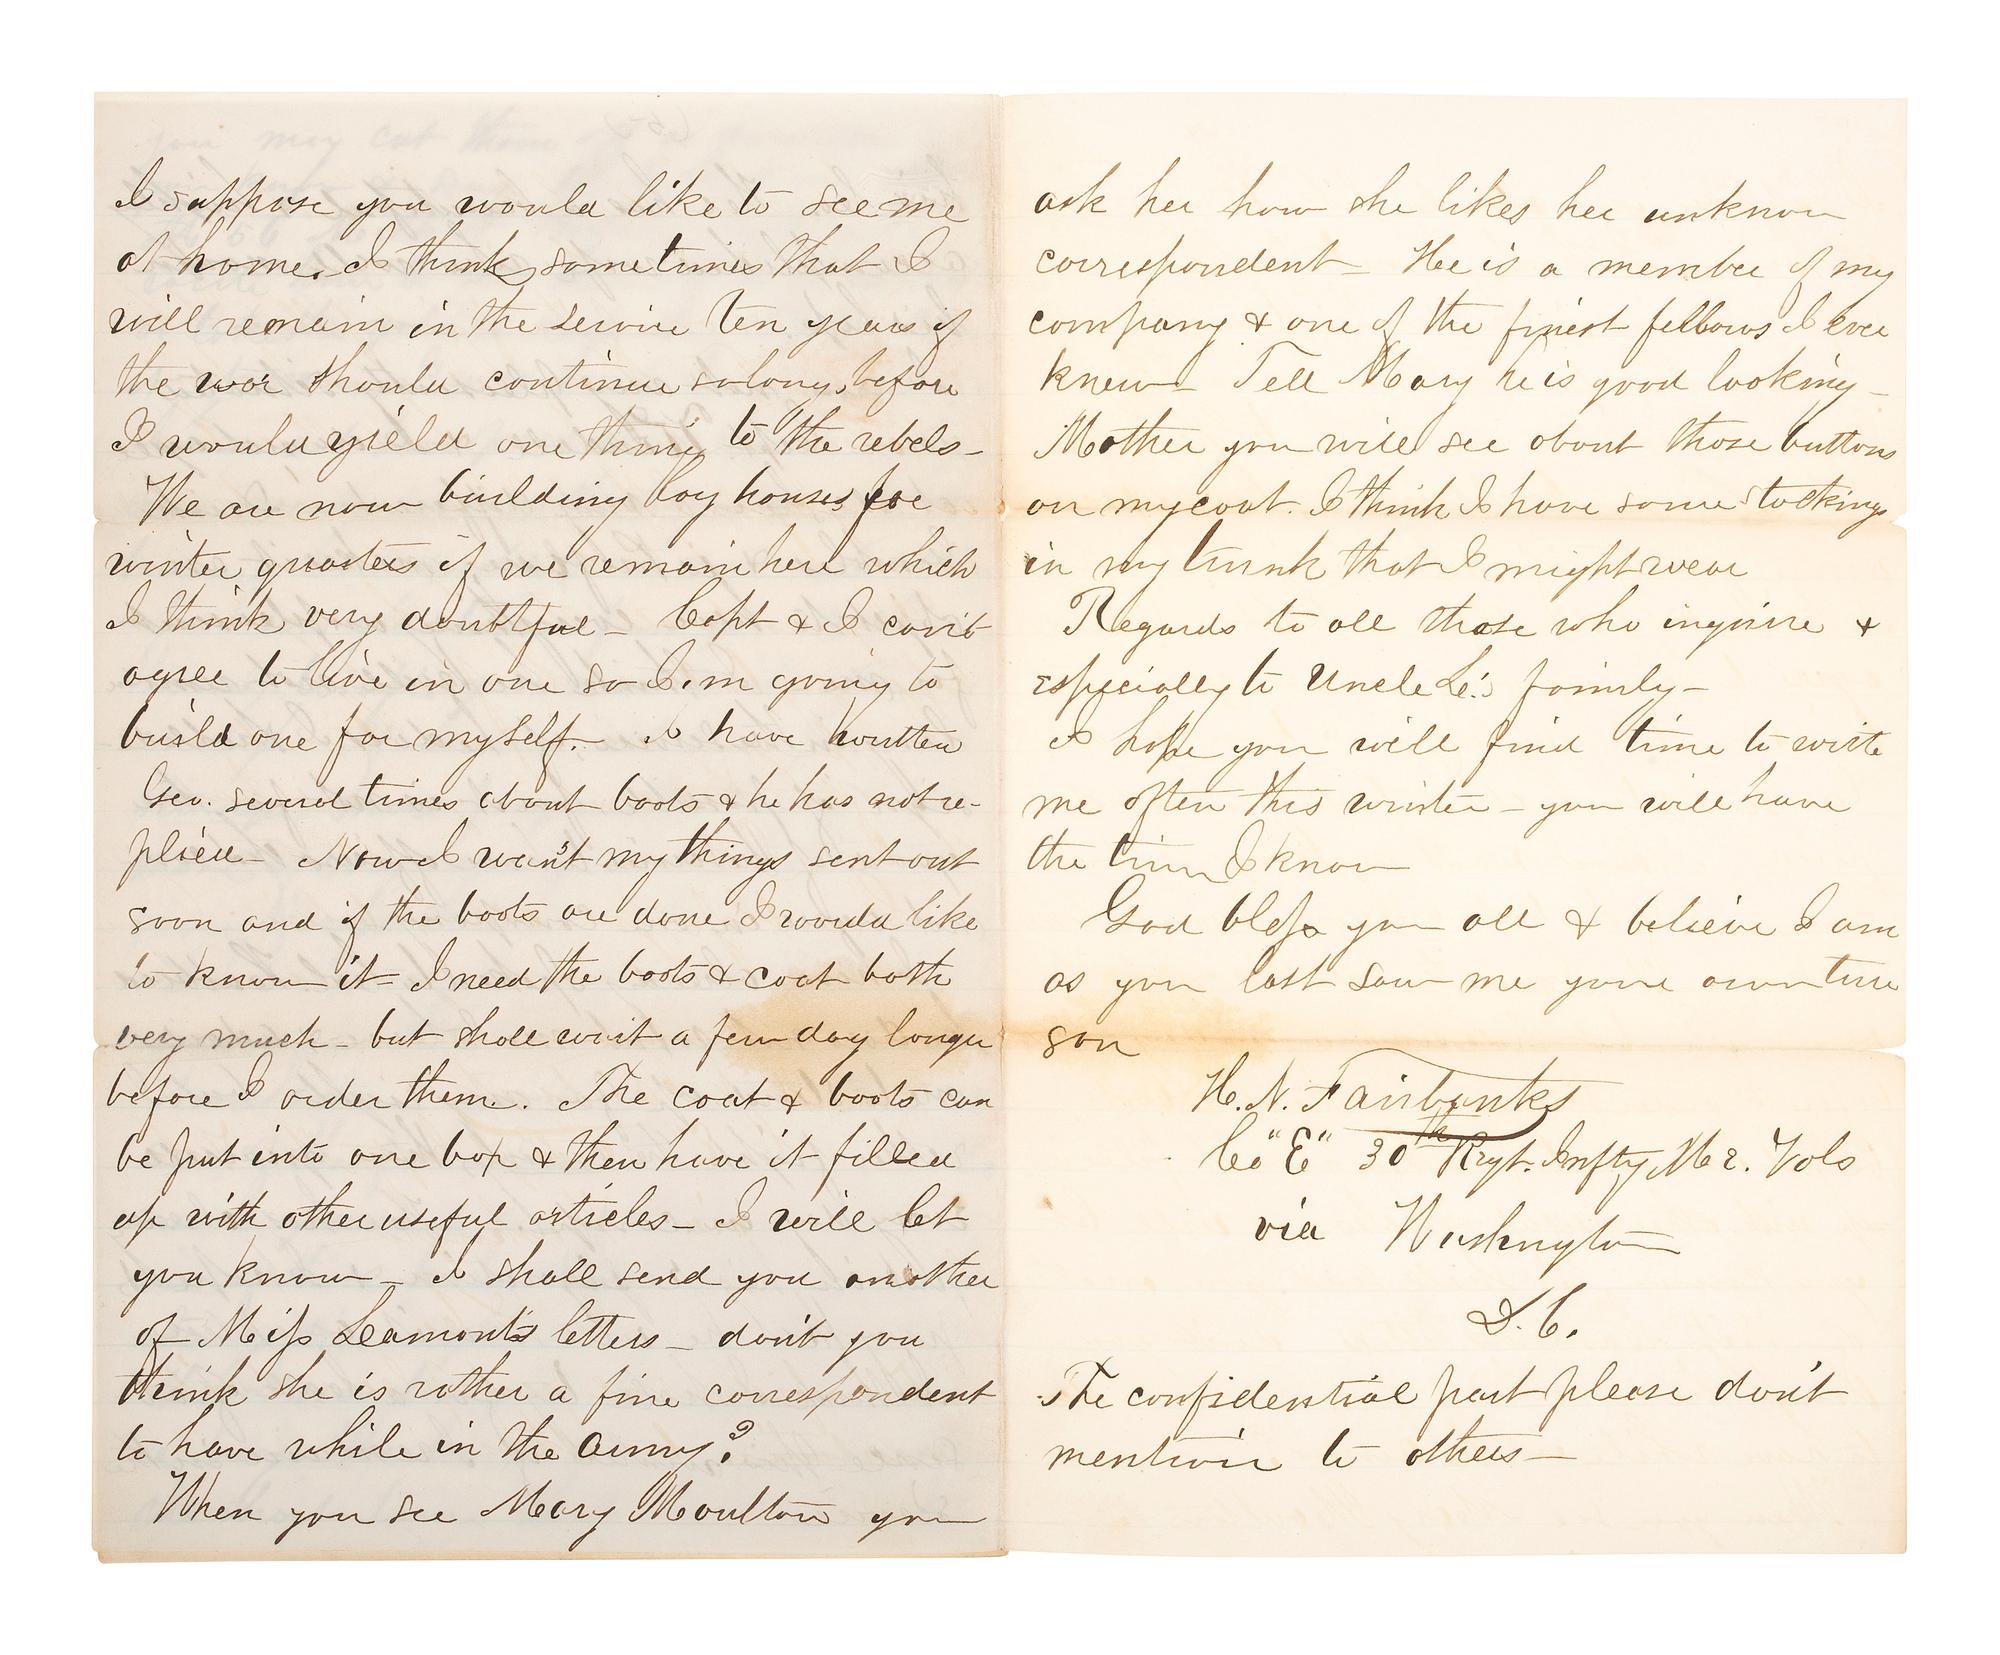 I suppose you would like to see me
at home. I think sometimes that I
will remain in the service ten years if
the war should continue so long, before
I would yield one thing to the rebels –
We are now building log houses for
winter quarters if we remain here which
I think very doubtful – Capt & I can't
agree to live in one so I'm going to
build one for myself. – I have written
Geo. several times about boots & he has not re-
plied – Now I want my things sent out
soon and if the boots are done I would like
to know it – I need the boots & coat both
very much – but shall wait a few day longer
before I order them. The coat & boots can
be put into one box & then have it filled
up with other useful articles – I will let
you know – I shall send you another
of Miss Leamont's letters – don't you
think she is rather a fine correspondent
to have while in the army?
When you see Mary Moulton you
ask her how she likes her unknown
correspondent – He is a member of my
company & one of the finest fellows I ever
knew – Tell Mary he is good looking –
Mother you will see about those buttons
on my coat. I think I have some stockings
in my trunk that I might wear
Regards to all those who inquire &
especially to Uncle Le's family –
I hope you will find time to write
me often this winter – you will have
the time I know
God bless you all & believe I am
as you last saw me your own true
son
H. N. Fairbanks
Co "E" 30th Regt. Infty Me. Vols
via Washington
D. C.
The confidential part please don't
mention to others –